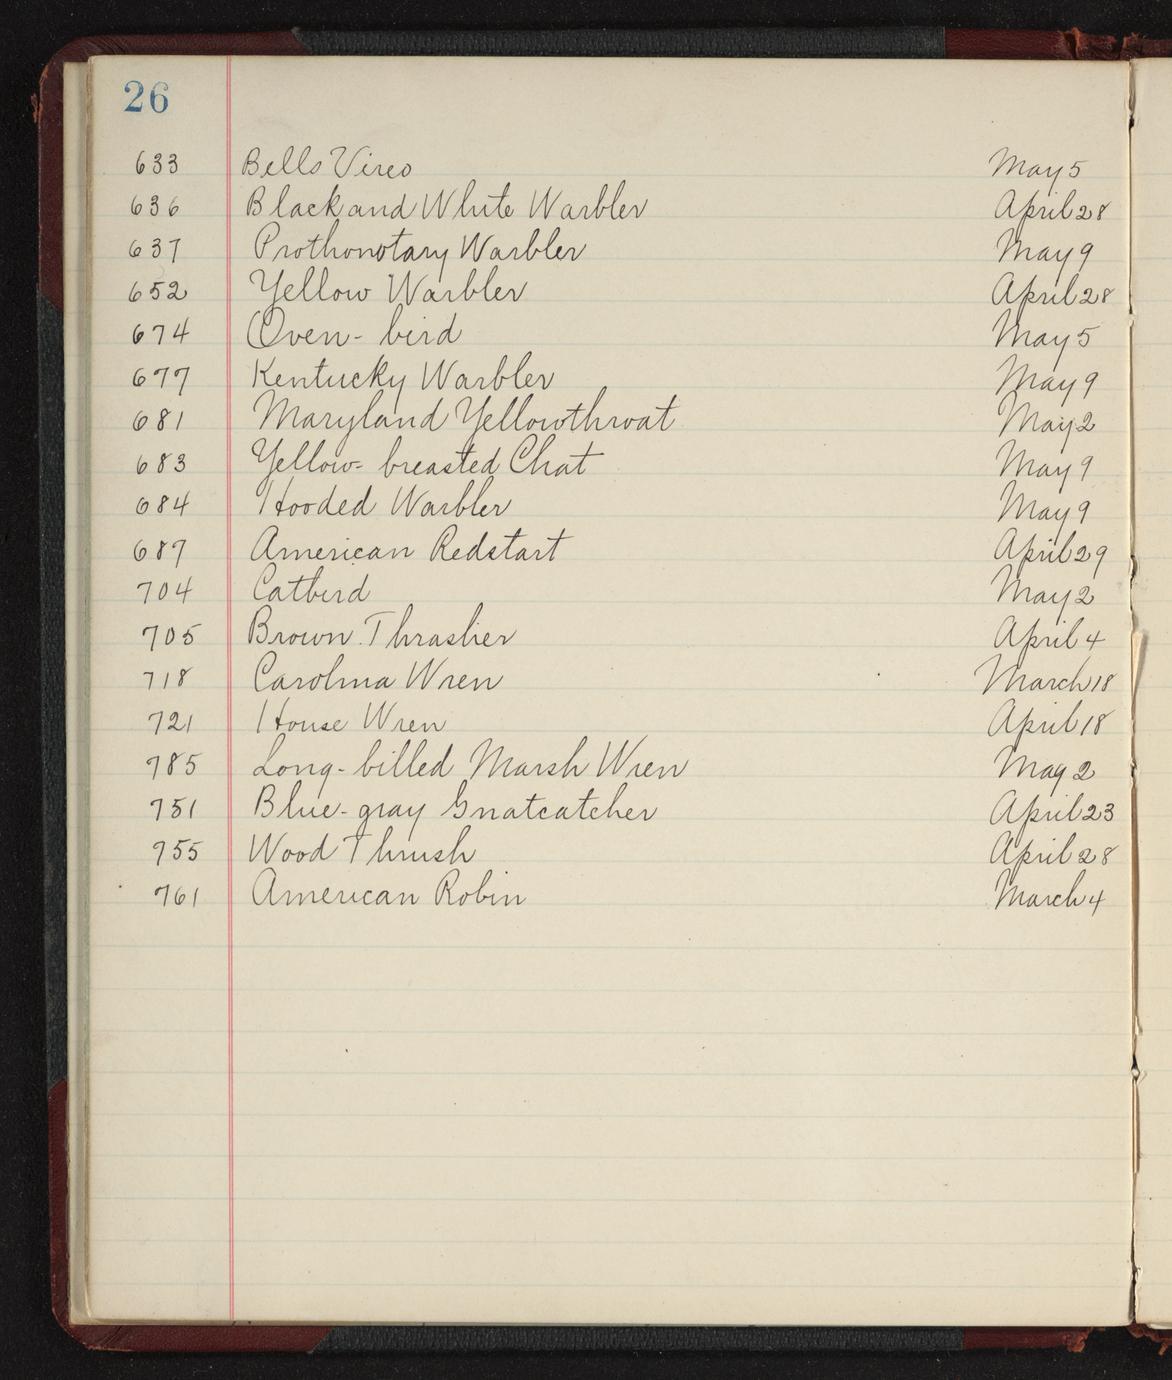 26
633 Bells Vireo May 5
636 Black and White Warbler April 28
637 Prothonotary Warbler May 9
652 Yellow Warbler April 28
674 Oven-bird May 5
677 Kentucky Warbler May 9
681 Maryland Yellowthroat May 2
683 Yellow-breasted Chat May 9
684 Hooded Warbler May 9
687 American Redstart April 29
704 Catbird May 2
705 Brown Thrasher April 4
718 Carolina Wren March 18
721 House Wren April 18
785 Long-billed Marsh Wren May 2
751 Blue-gray Gnatcatcher April 23
755 Wood Thrush April 28
761 American Robin March 4